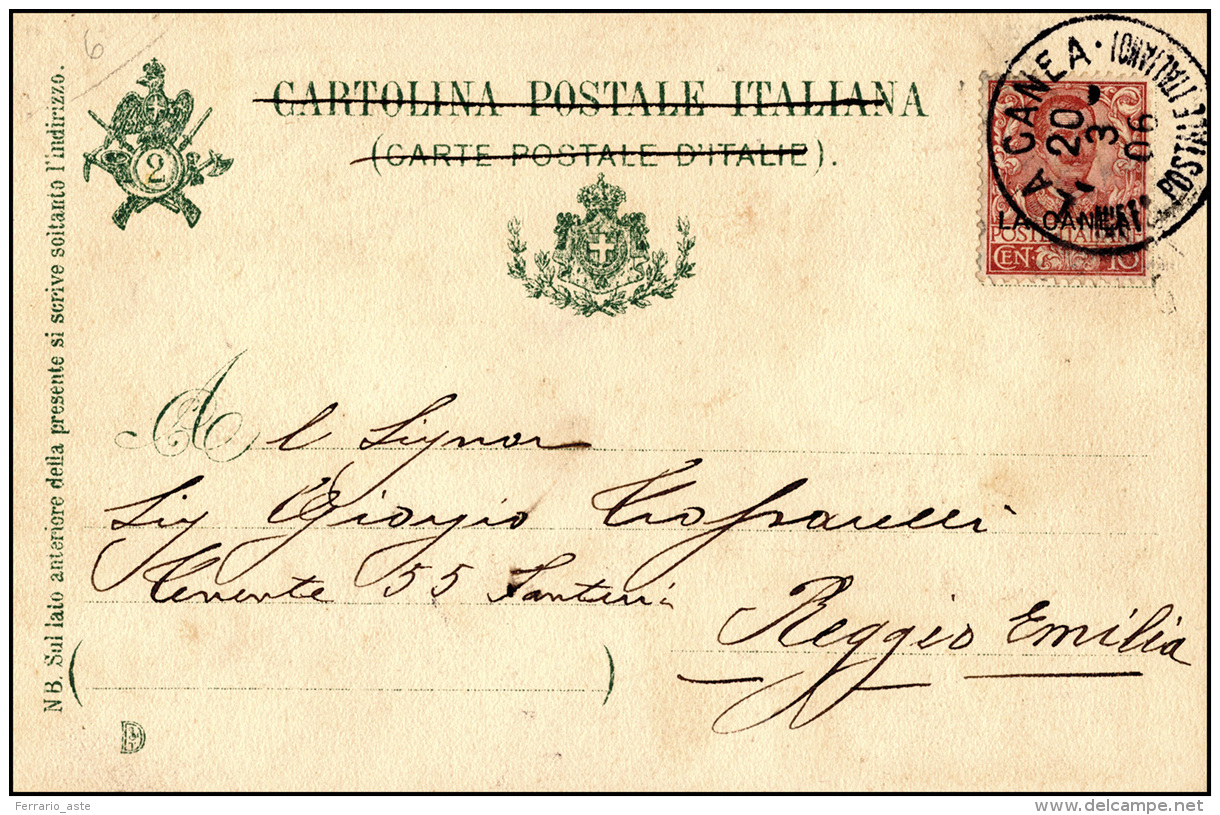 6
CARTOLINA POSTALE ITALIANA
(CARTE POSTALE D'ITALIE).
2
NB. Sul lato anteriore della presente si scrive soltanto l'indirizzo.
LA CANEA · POSTE ITALIANE
20
3
06
LA CANEA
POSTE ITALIANE
CEN. 10
Al Signor
Sig Giorgio
Tenente 55 Fanteria
Reggio Emilia
( )
Ferrario_aste
delcampe.net